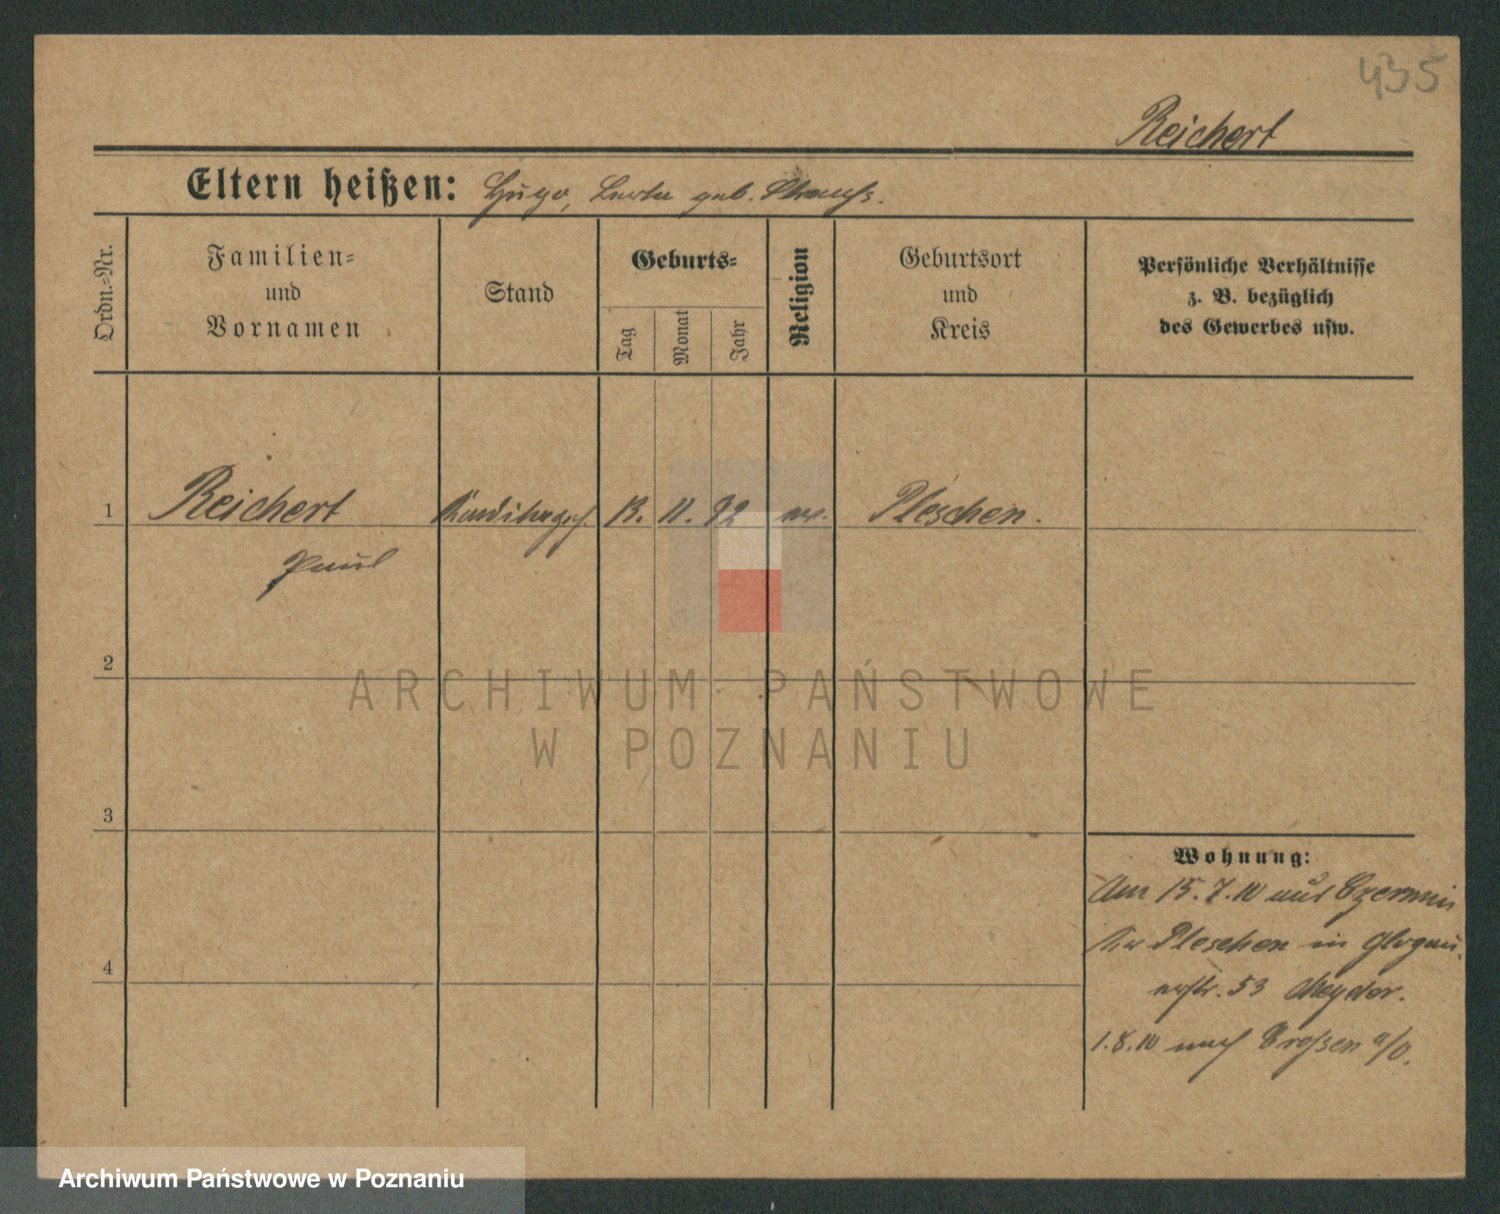 435
Reichert
Eltern heißen: Hugo, geb.
Ordn.-Nr.
Familien-
und
Vornamen
Stand
Geburts-
Tag
Monat
Jahr
Religion
Geburtsort
und
Kreis
Persönliche Verhältnisse
z. B. bezüglich
des Gewerbes usw.
1 Reichert 11. 92 Pleschen.
Paul
2
ARCHIWUM PAŃSTWOWE
W POZNANIU
3
Wohnung:
Am 15.7.10 aus Czermin
Kr Pleschen in Glogau,
53
4
1.8.10 nach Crossen a/O.
Archiwum Państwowe w Poznaniu